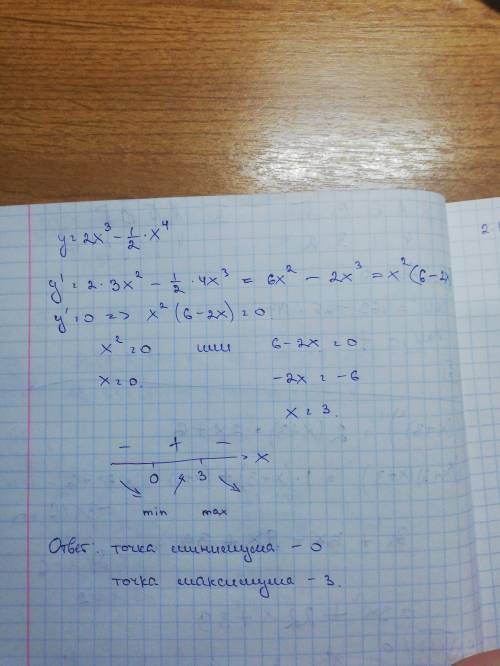 y=2x³-½·x⁴
y'=2·3x²-½·4x³=6x²-2x³=x²(6-2
y'=0=>x²(6-2x)=0.
x²=0 или 6-2x=0.
x=0. -2x=-6
x=3.
- + -
0 3 x
min max
Ответ: точка минимума - 0
точка максимума - 3.
2